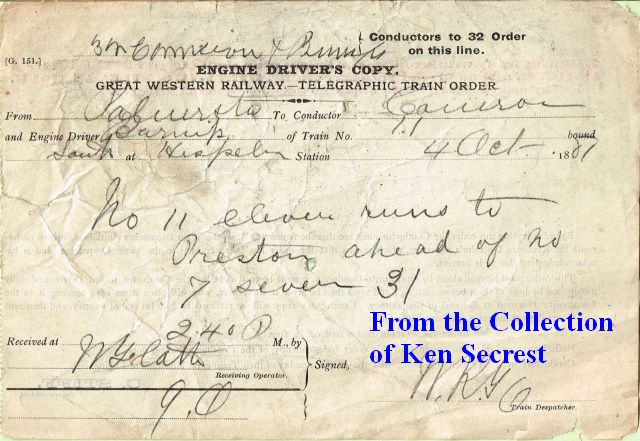 Conductors to 32 Order
on this line.
[G. 151.]
ENGINE DRIVER'S COPY.
GREAT WESTERN RAILWAY.—TELEGRAPHIC TRAIN ORDER.
From Palmerston To Conductor Cameron
and Engine Driver Burnip of Train No. 11 bound
South at Hespeler Station 4 Oct 1881
No 11 eleven runs to
Preston ahead of No
7 seven 31
Received at 2.40 P M., by
Receiving Operator.
Signed,
Train Despatcher.
From the Collection
of Ken Secrest